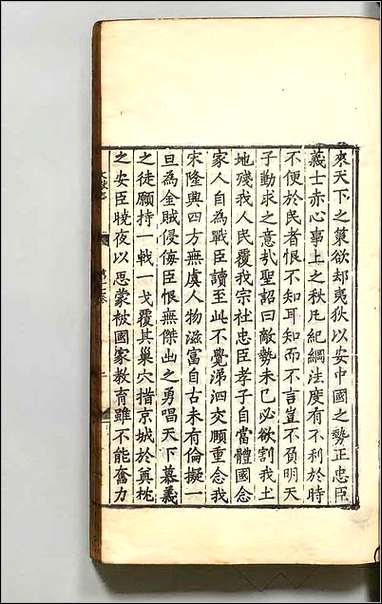 來天下之策欲却夷狄以安中國之勢正忠臣
義士赤心事上之秋凡紀綱法度有不利於時
不便於民者恨不知耳知而不言豈不負明天
子勤求之意哉聖詔曰敵勢未已必欲割我土
地殘我人民覆我宗社忠臣孝子自當體國念
家人自為戰臣讀至此不覺涕泗交頤重念我
宋隆興四方無虞人物滋富自古未有倫擬一
旦為金賊侵侮臣恨無傑出之勇唱天下慕義
之徒願持一戟一戈覆其巢穴措京城於奠枕
之安臣曉夜以思蒙被國家教育雖不能奮力